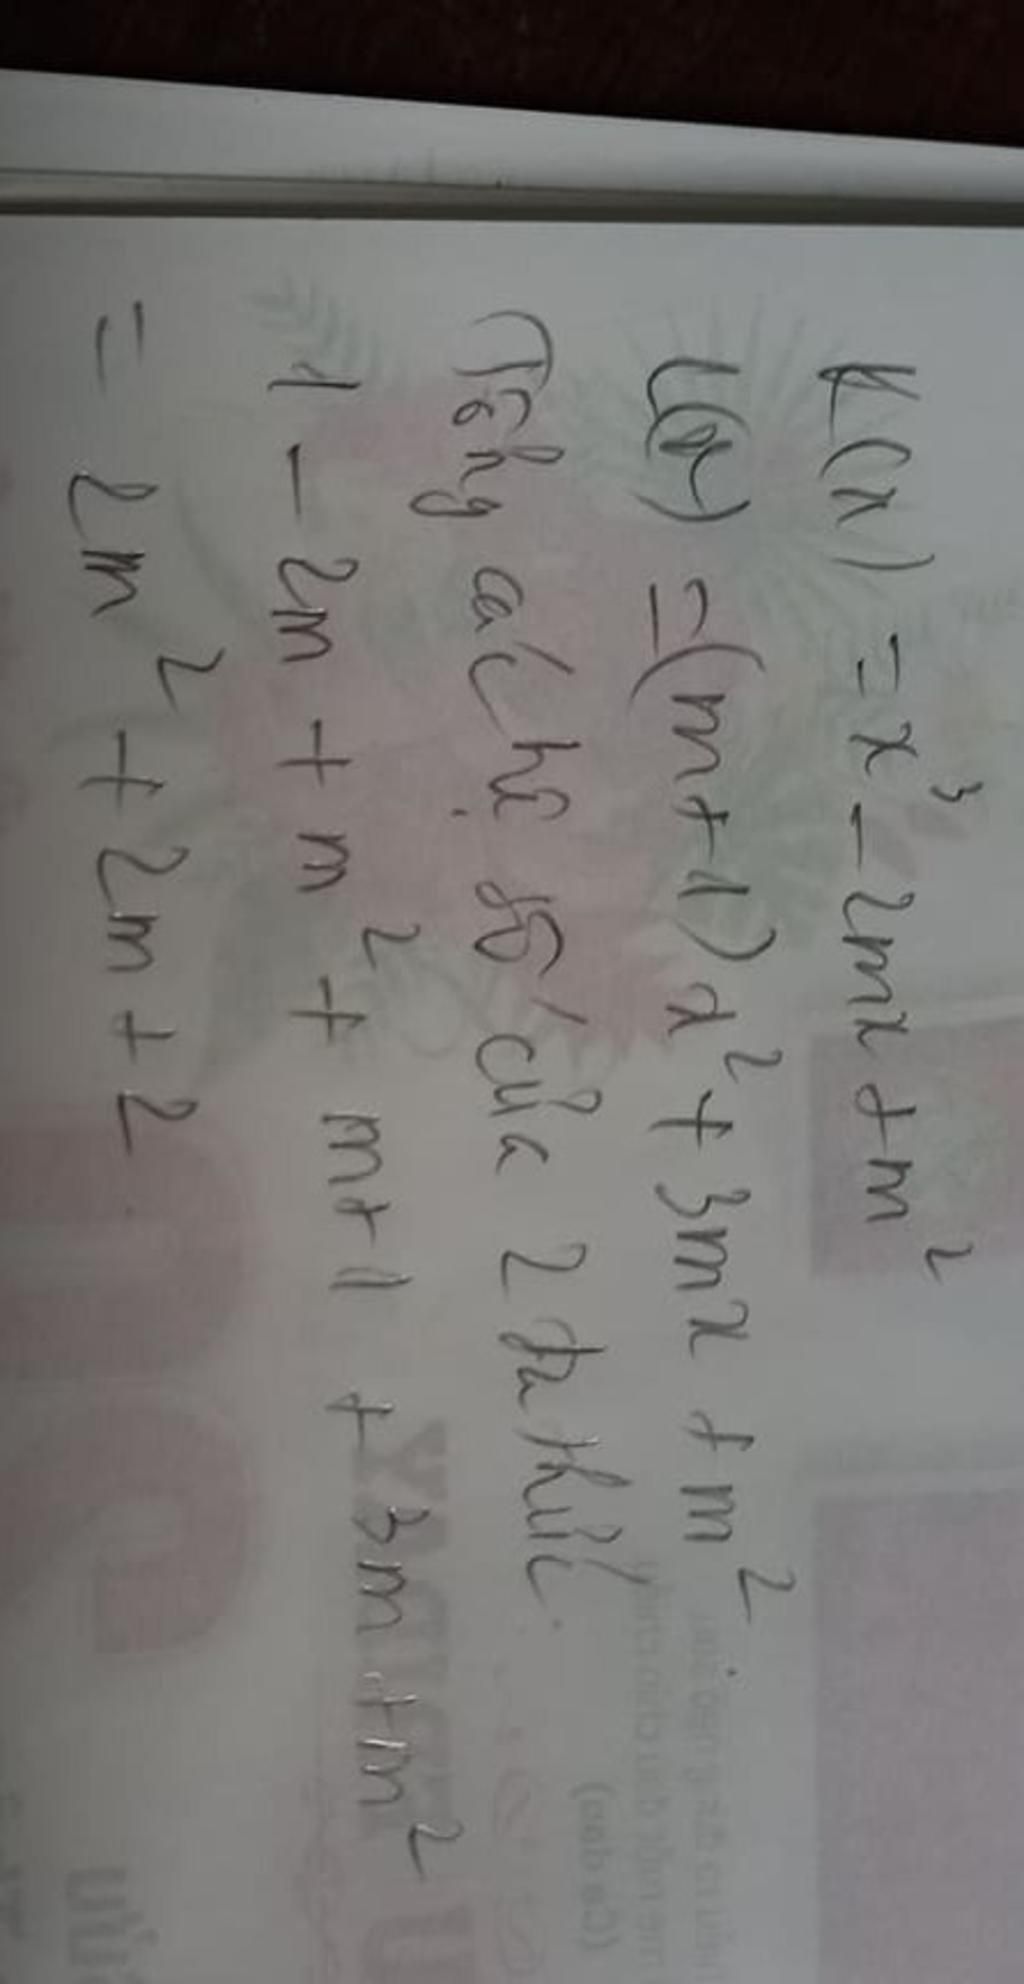 K(x) = x³ - 2mx + m²
L(x) = (m+1)x² + 3mx + m²
Tổng các hệ số của 2 đa thức
1 - 2m + m² + m+1 + 3m + m²
= 2m² + 2m + 2